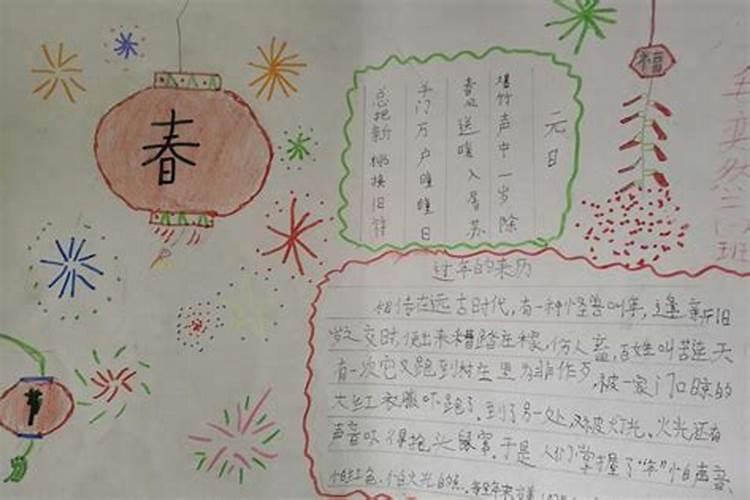 春
元日
爆竹声中一岁除
春风送暖入屠苏
千门万户曈曈日
总把新桃换旧符
福
过年的来历
相传在远古时代,有一种怪兽叫年,逢新旧
岁之交时,便出来糟踏庄稼,伤人畜,百姓叫苦连天
有一次它又跑到村庄里为非作歹,被一家门口晾的
大红衣服吓跑了,到了另一处,又被灯光、火光还有
声音吓得抱头鼠窜,于是人们掌握了“年”怕声音、
怕红色、怕火光的
班